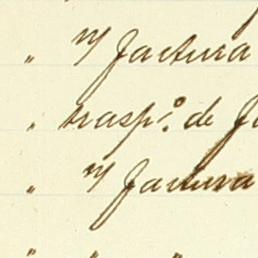 " n/ factura
" trasp.º de
" n/ factura
" " "